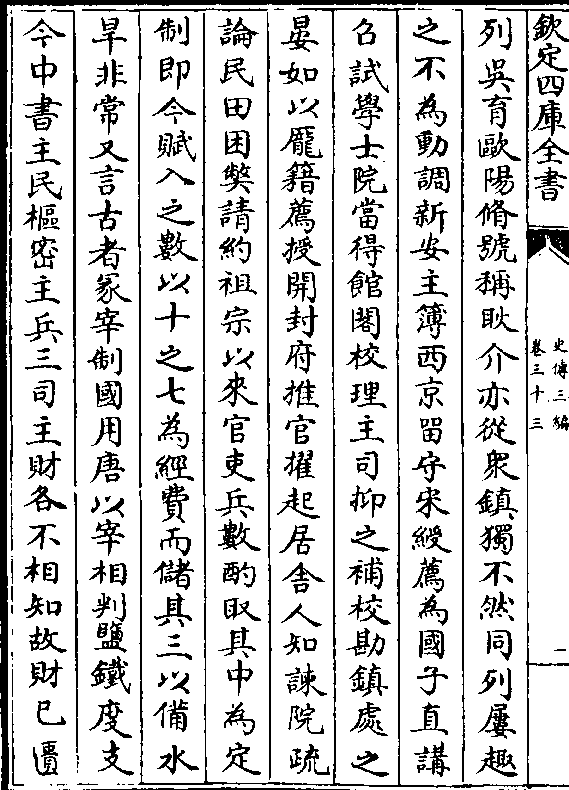 欽定四庫全書
史傳三編
卷三十三
一
列吳育歐陽脩號稱耿介亦從眾鎮獨不然同列屢趣
之不為動調新安主簿西京留守宋綬薦為國子直講
召試學士院當得館閣校理主司抑之補校勘鎮處之
晏如以龎籍薦授開封府推官擢起居舍人知諫院疏
論民田困獘請約祖宗以來官吏兵數酌取其中為定
制即今賦入之數以十之七為經費而儲其三以備水
旱非常又言古者冢宰制國用唐以宰相判鹽鐵度支
今中書主民樞宻主兵三司主財各不相知故財已匱